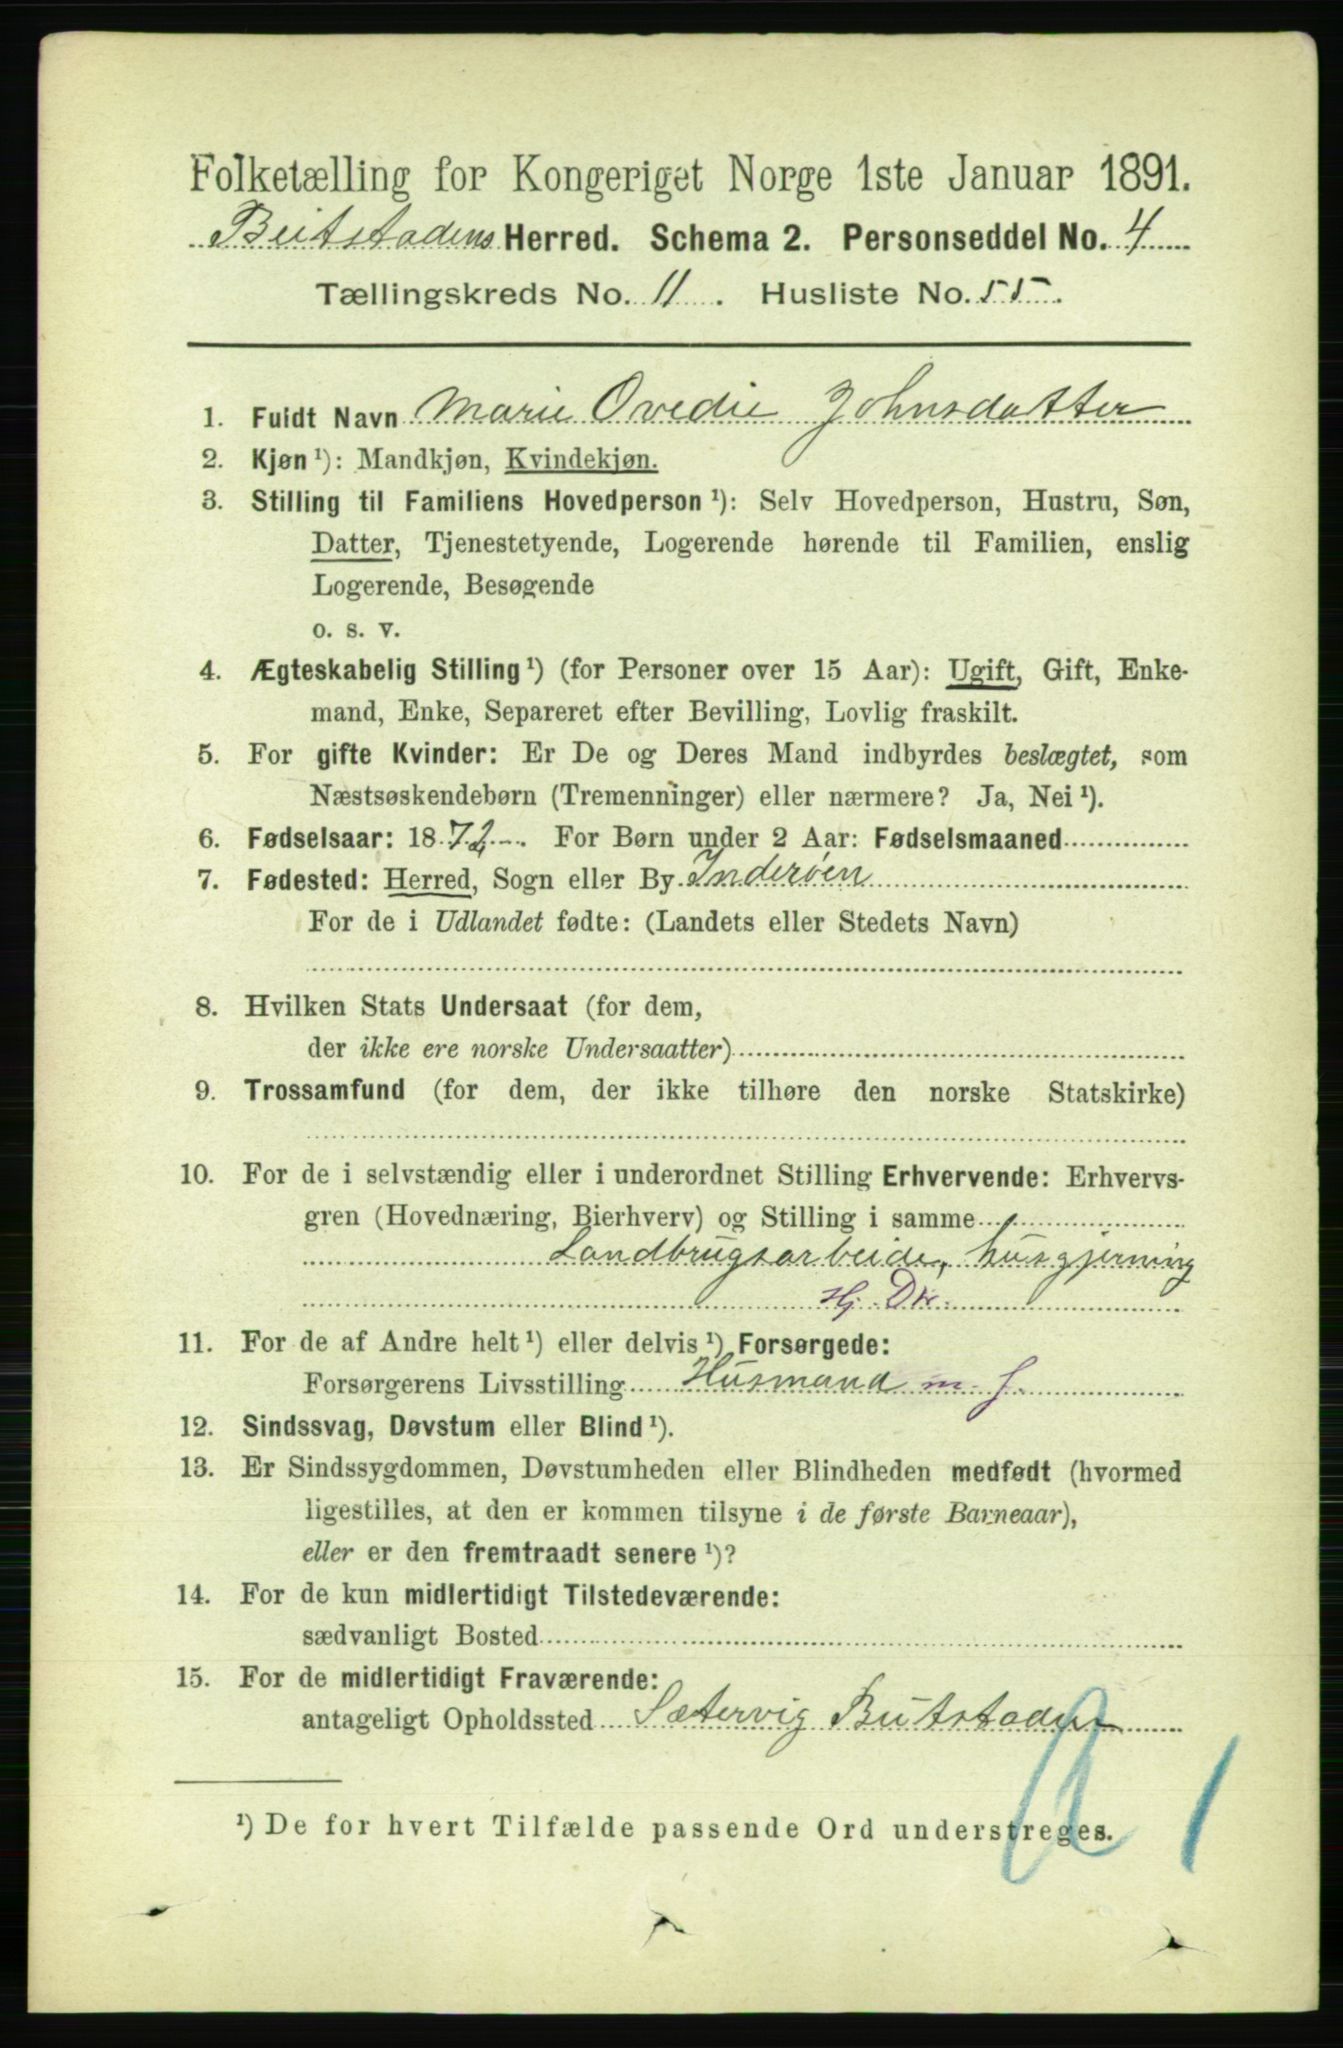 Folketælling for Kongeriget Norge 1ste Januar 1891.
Beitstadens Herred. Schema 2. Personseddel No. 4
Tællingskreds No. 11. Husliste No. 55.
1. Fuldt Navn Marie Ovedie Johnsdatter
2. Kjøn ¹): Mandkjøn, Kvindekjøn.
3. Stilling til Familiens Hovedperson ¹): Selv Hovedperson, Hustru, Søn,
Datter, Tjenestetyende, Logerende hørende til Familien, enslig
Logerende, Besøgende
o. s. v.
4. Ægteskabelig Stilling ¹) (for Personer over 15 Aar): Ugift, Gift, Enke-
mand, Enke, Separeret efter Bevilling, Lovlig fraskilt.
5. For gifte Kvinder: Er De og Deres Mand indbyrdes beslægtet, som
Næstsøskendebørn (Tremenninger) eller nærmere? Ja, Nei ¹).
6. Fødselsaar: 1872. For Børn under 2 Aar: Fødselsmaaned
7. Fødested: Herred, Sogn eller By Inderøen
For de i Udlandet fødte: (Landets eller Stedets Navn)
8. Hvilken Stats Undersaat (for dem,
der ikke ere norske Undersaatter)
9. Trossamfund (for dem, der ikke tilhøre den norske Statskirke)
10. For de i selvstændig eller i underordnet Stilling Erhvervende: Erhvervs-
gren (Hovednæring, Bierhverv) og Stilling i samme
Landbrugsarbeide, husgjerning
Hj. Dtr.
11. For de af Andre helt ¹) eller delvis ¹) Forsørgede:
Forsørgerens Livsstilling Husmand m. J.
12. Sindssvag, Døvstum eller Blind ¹).
13. Er Sindssygdommen, Døvstumheden eller Blindheden medfødt (hvormed
ligestilles, at den er kommen tilsyne i de første Barneaar),
eller er den fremtraadt senere ¹)?
14. For de kun midlertidigt Tilstedeværende:
sædvanligt Bosted
15. For de midlertidigt Fraværende:
antageligt Opholdssted Sætervig Beitstaden
¹) De for hvert Tilfælde passende Ord understreges.
1